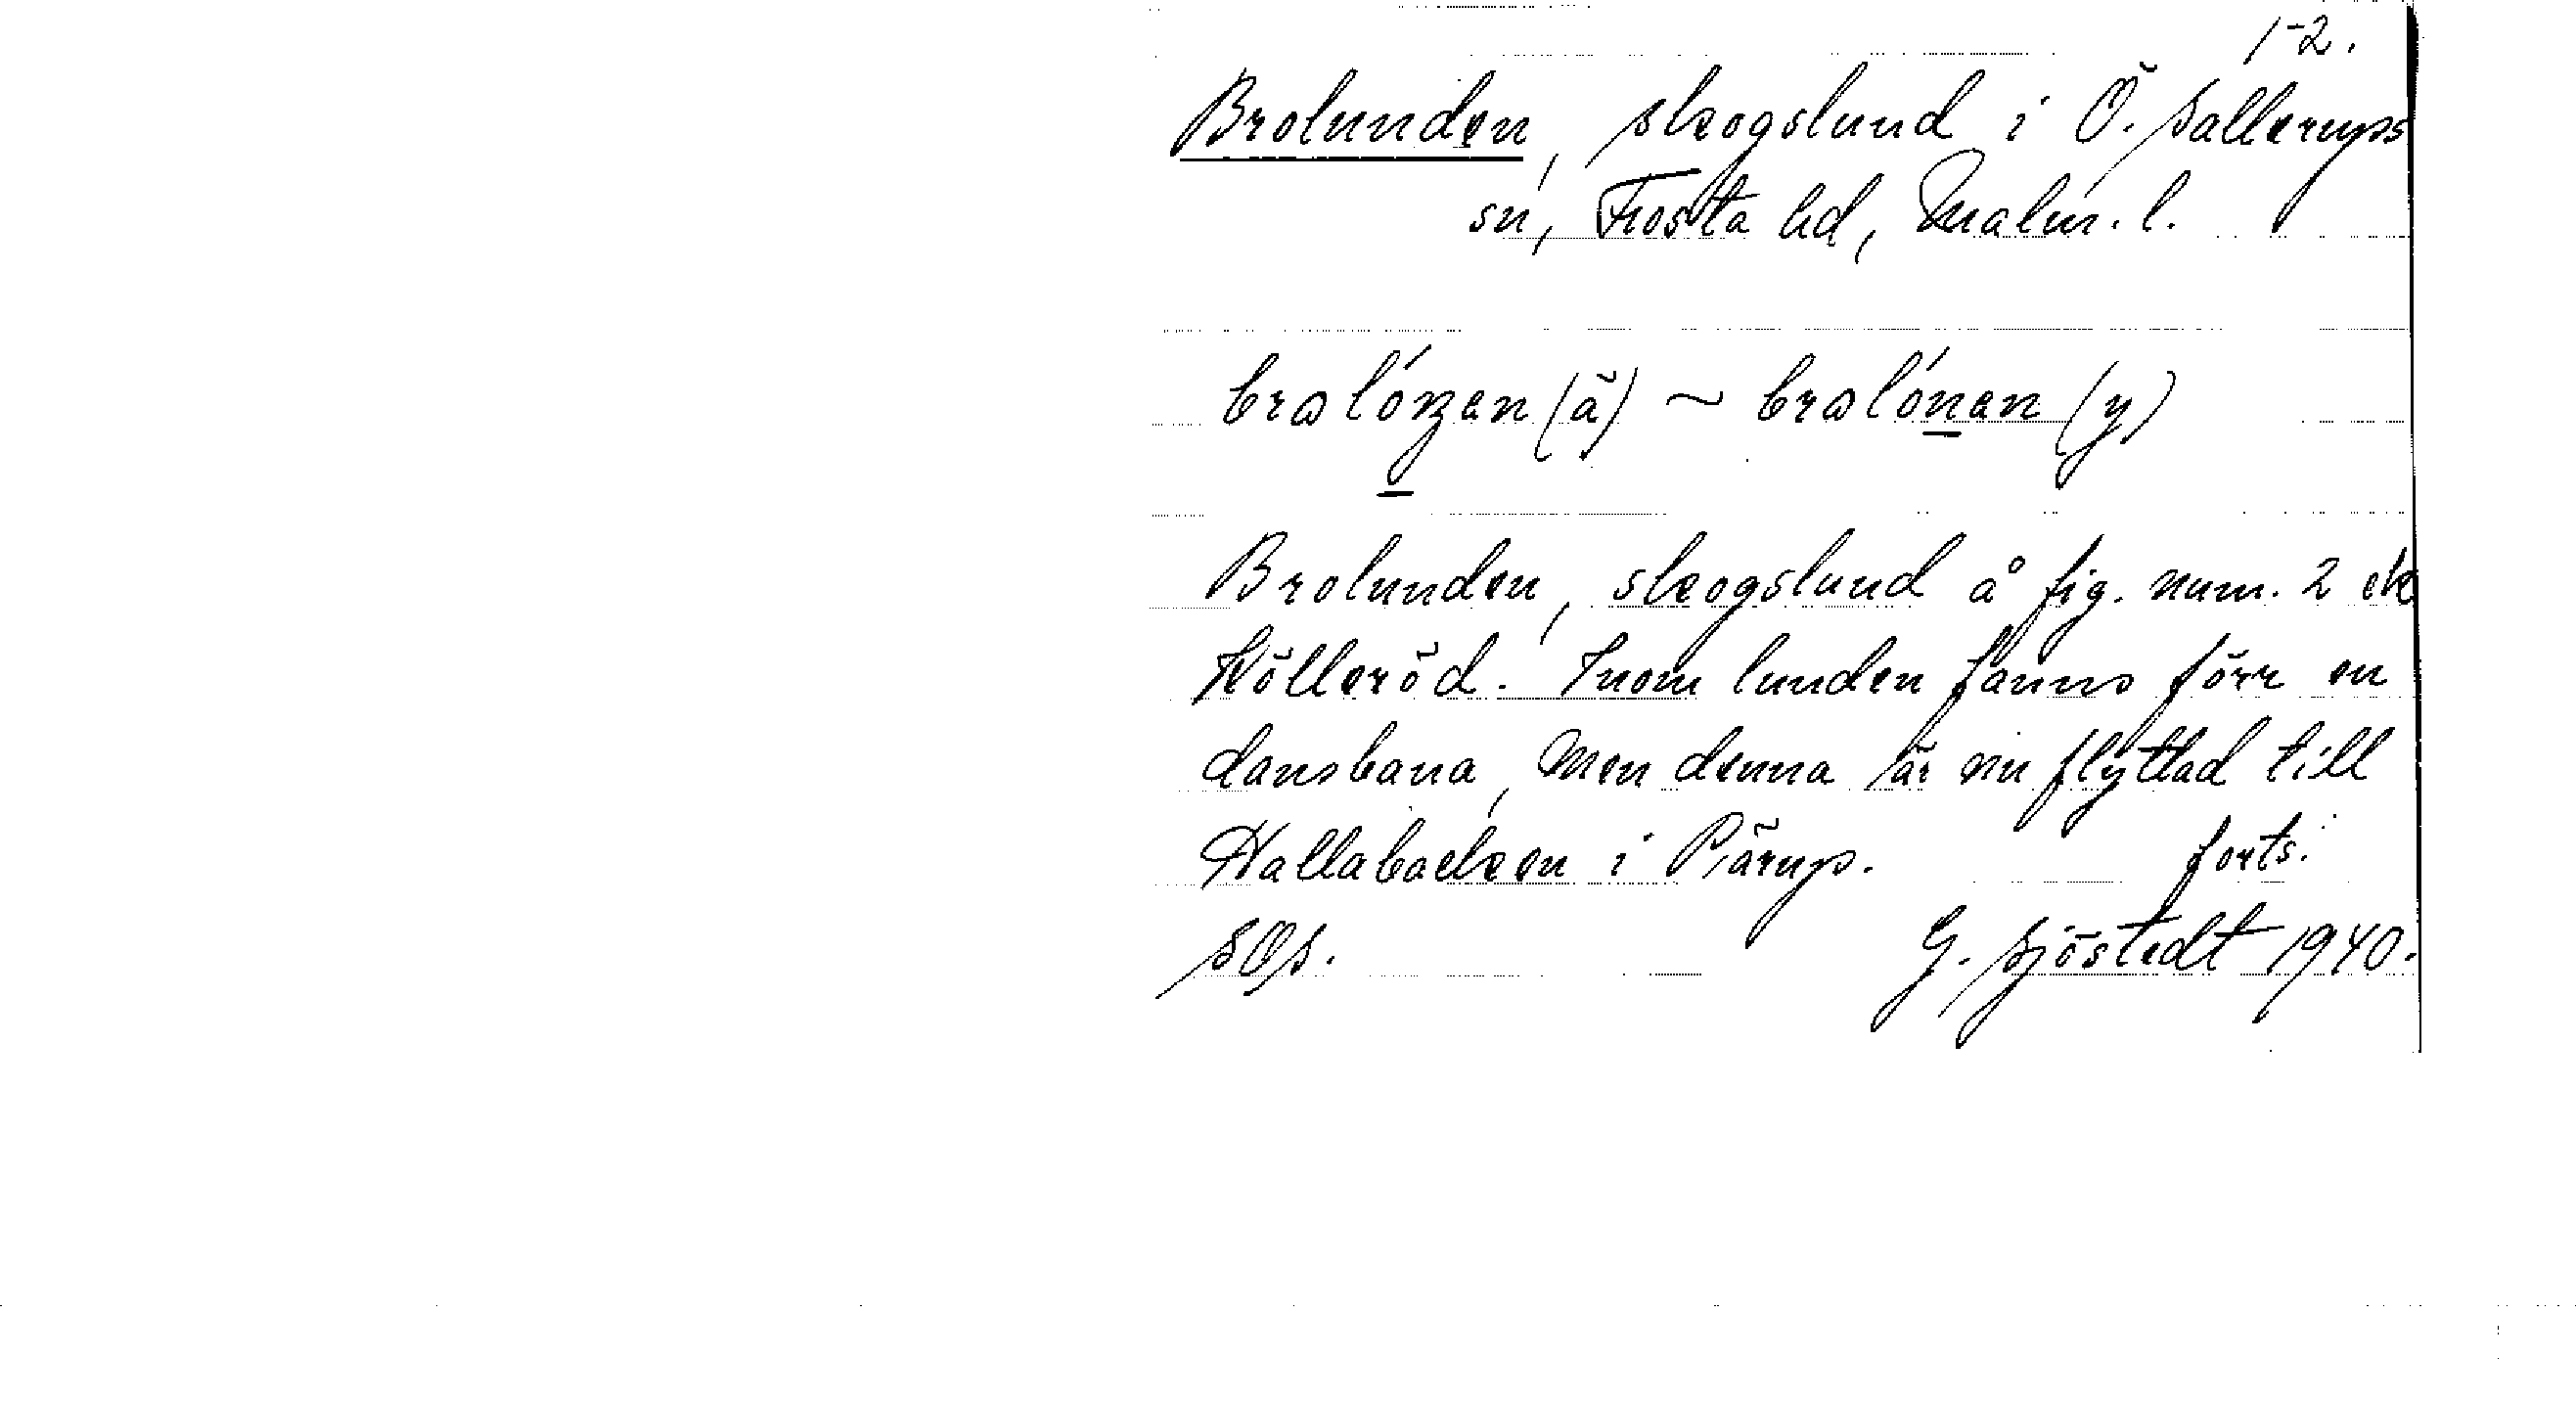 1-2.
Brolunden, skogslund i Ö. Sallerups
sn, Frosta hd, Malm. l.
(ä) ~ (y)
Brolunden, skogslund å fig. num. 2 ek
Kölleröd. Inom lunden fanns förr en
dansbana, men denna är nu flyttad till
Hallabacken i Pärup. forts.
SOS. G. Sjöstedt 1940.